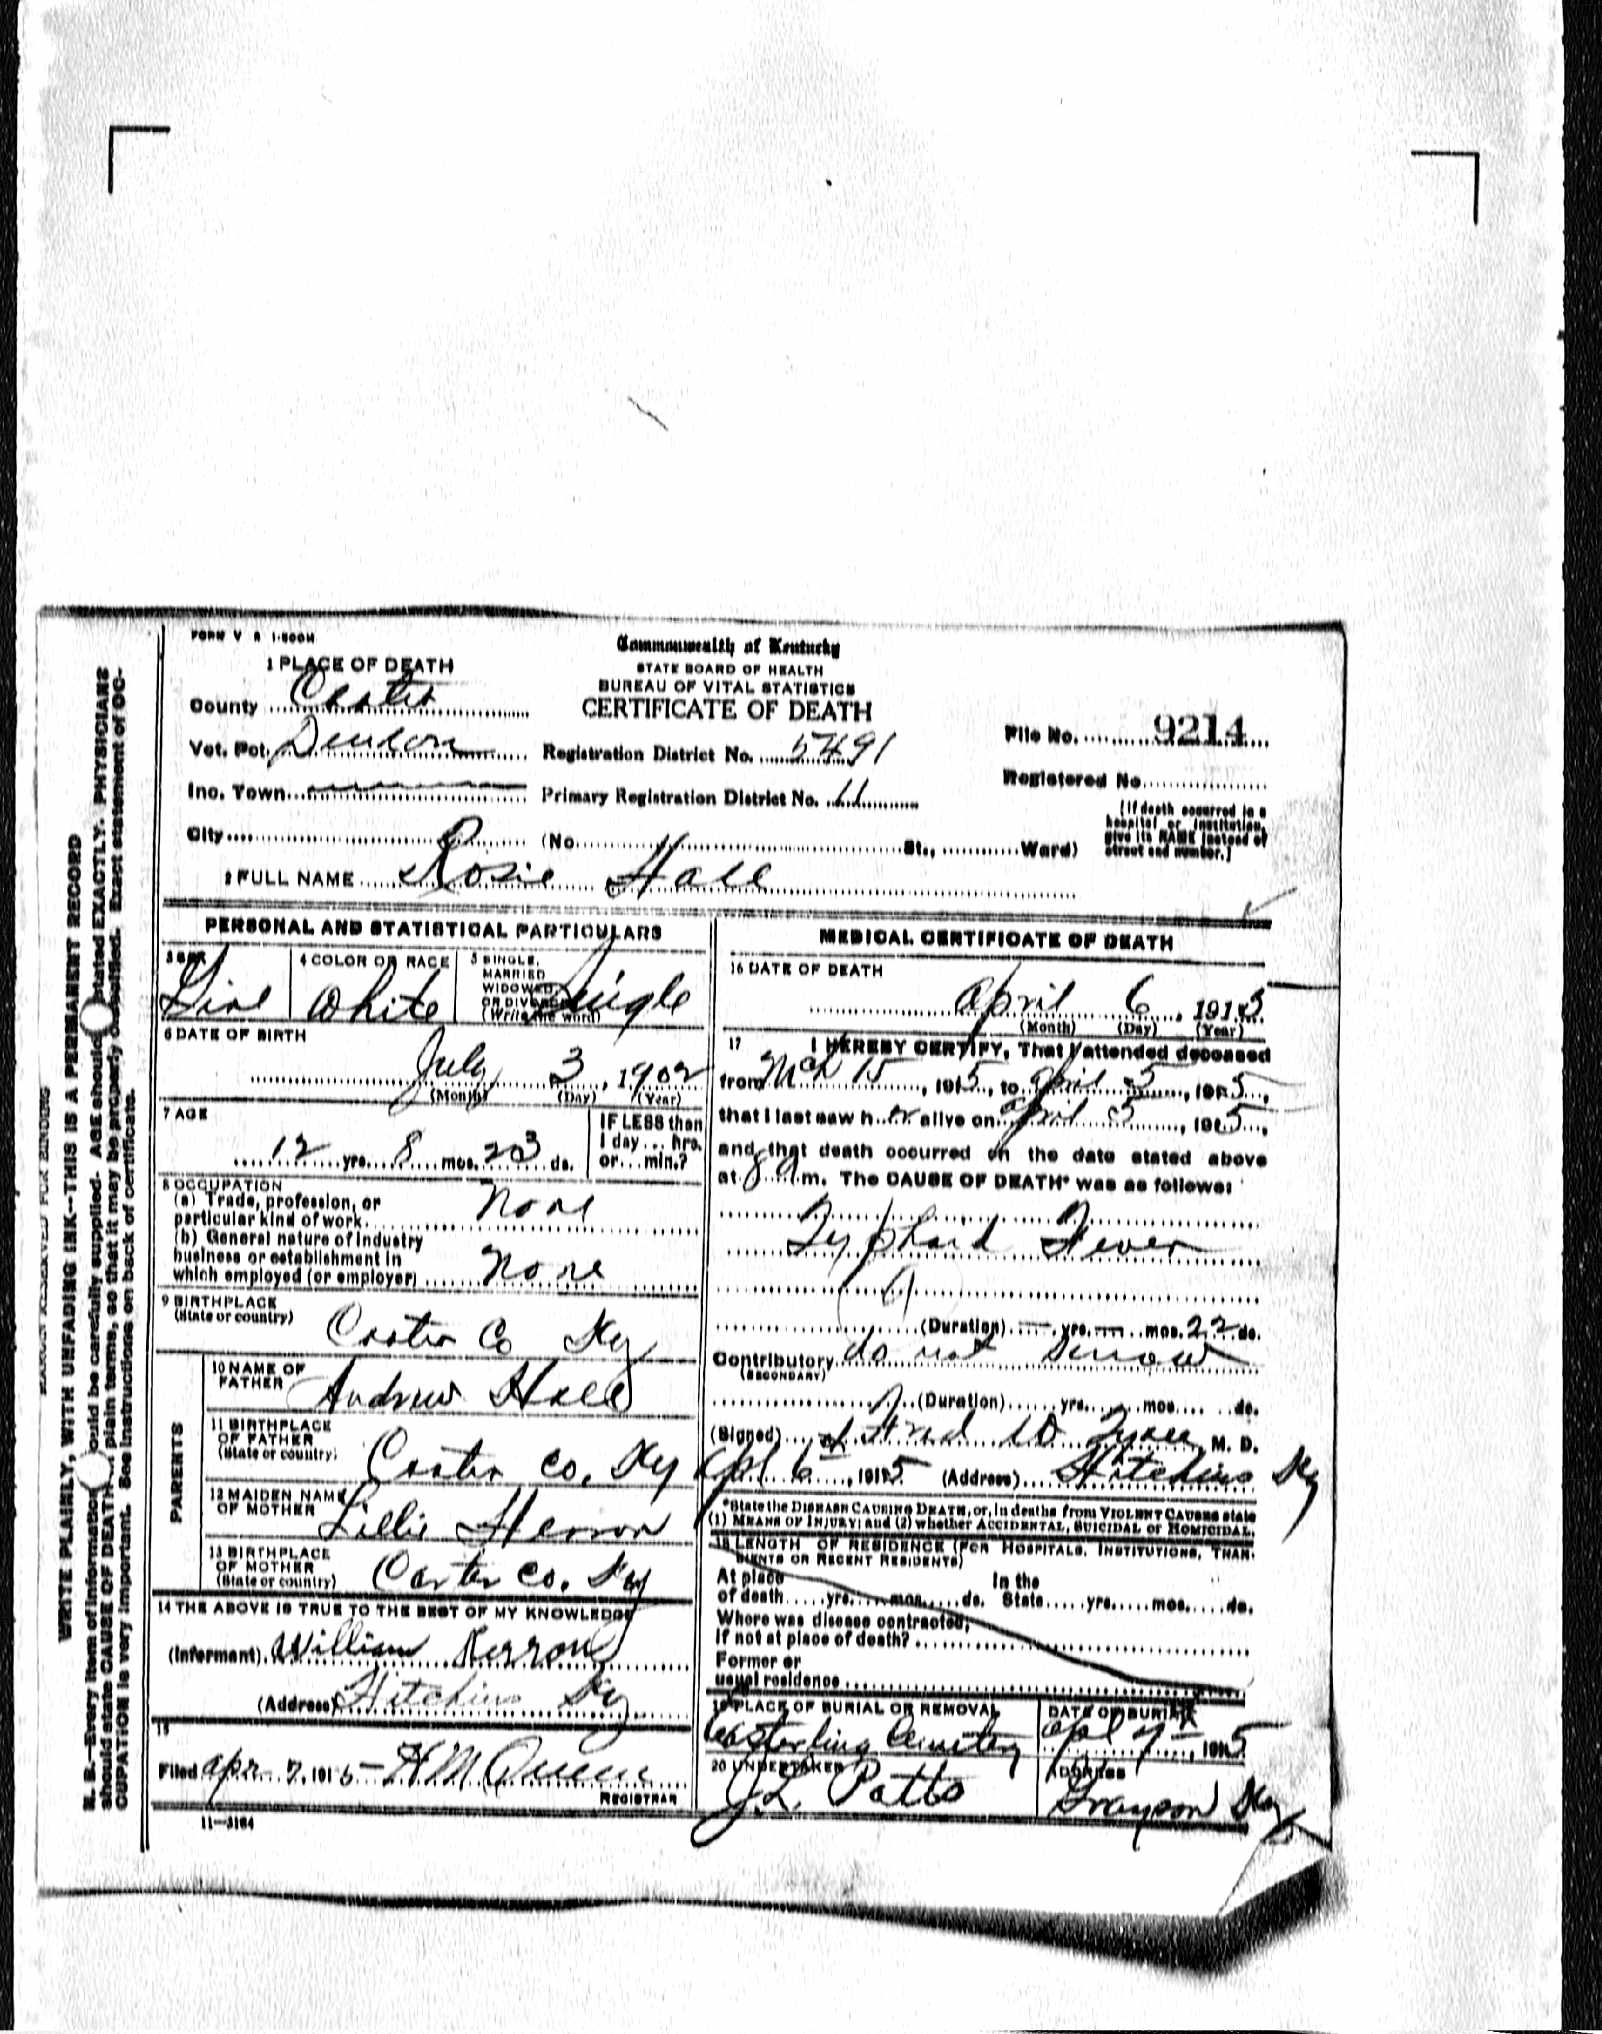 FORM V S 1-500M
Commonwealth of Kentucky
STATE BOARD OF HEALTH
BUREAU OF VITAL STATISTICS
CERTIFICATE OF DEATH
1 PLACE OF DEATH
County Carter
Vot. Pct. Denton Registration District No. 5491
File No. 9214
Inc. Town Primary Registration District No. 11
Registered No.
City (No. St., Ward)
[If death occurred in a
hospital or institution,
give its NAME instead of
street and number.]
2 FULL NAME Rosie Hall
PERSONAL AND STATISTICAL PARTICULARS
3 SEX Girl
4 COLOR OR RACE White
5 SINGLE, MARRIED WIDOWED, OR DIVORCED (Write the word) Single
6 DATE OF BIRTH
July 3, 1902
(Month) (Day) (Year)
7 AGE
12 yrs. 8 mos. 23 ds.
IF LESS than
1 day ... hrs.
or ... min.?
8 OCCUPATION
(a) Trade, profession, or
particular kind of work None
(b) General nature of industry
business or establishment in
which employed (or employer) None
9 BIRTHPLACE
(State or country) Carter Co Ky
PARENTS
10 NAME OF
FATHER Andrew Hall
11 BIRTHPLACE
OF FATHER
(State or country) Carter Co. Ky
12 MAIDEN NAME
OF MOTHER Lillie Herron
13 BIRTHPLACE
OF MOTHER
(State or country) Carter Co. Ky
14 THE ABOVE IS TRUE TO THE BEST OF MY KNOWLEDGE
(Informant) William Herron
(Address) Hitchins Ky
15
Filed Apr 7, 1915 H M
REGISTRAR
11-3184
MEDICAL CERTIFICATE OF DEATH
16 DATE OF DEATH
April 6, 1915
(Month) (Day) (Year)
17 I HEREBY CERTIFY, That I attended deceased
from Mch 15, 1915, to April 5, 1915,
that I last saw her alive on April 5, 1915,
and that death occurred on the date stated above
at 8 a m. The CAUSE OF DEATH* was as follows:
Typhoid Fever
(Duration) — yrs. — mos. 22 ds.
Contributory do not know
(SECONDARY)
(Duration) yrs. mos. ds.
(Signed) M. D.
Apl 6th, 1915 (Address) Hitchins Ky
*State the DISEASE CAUSING DEATH, or, in deaths from VIOLENT CAUSES state
(1) MEANS OF INJURY; and (2) whether ACCIDENTAL, SUICIDAL or HOMICIDAL.
18 LENGTH OF RESIDENCE (FOR HOSPITALS, INSTITUTIONS, TRAN-
SIENTS OR RECENT RESIDENTS)
At place In the
of death yrs. mos. ds. State yrs. mos. ds.
Where was disease contracted,
if not at place of death?
Former or
usual residence
19 PLACE OF BURIAL OR REMOVAL DATE OF BURIAL
Easterling Cemetery Apl 7th, 1915
20 UNDERTAKER ADDRESS
J. L. Potts Grayson Ky
MARGIN RESERVED FOR BINDING
WRITE PLAINLY, WITH UNFADING INK--THIS IS A PERMANENT RECORD
N. B.—Every item of information should be carefully supplied. AGE should be stated EXACTLY. PHYSICIANS
should state CAUSE OF DEATH in plain terms, so that it may be properly classified. Exact statement of OC-
CUPATION is very important. See instructions on back of certificate.